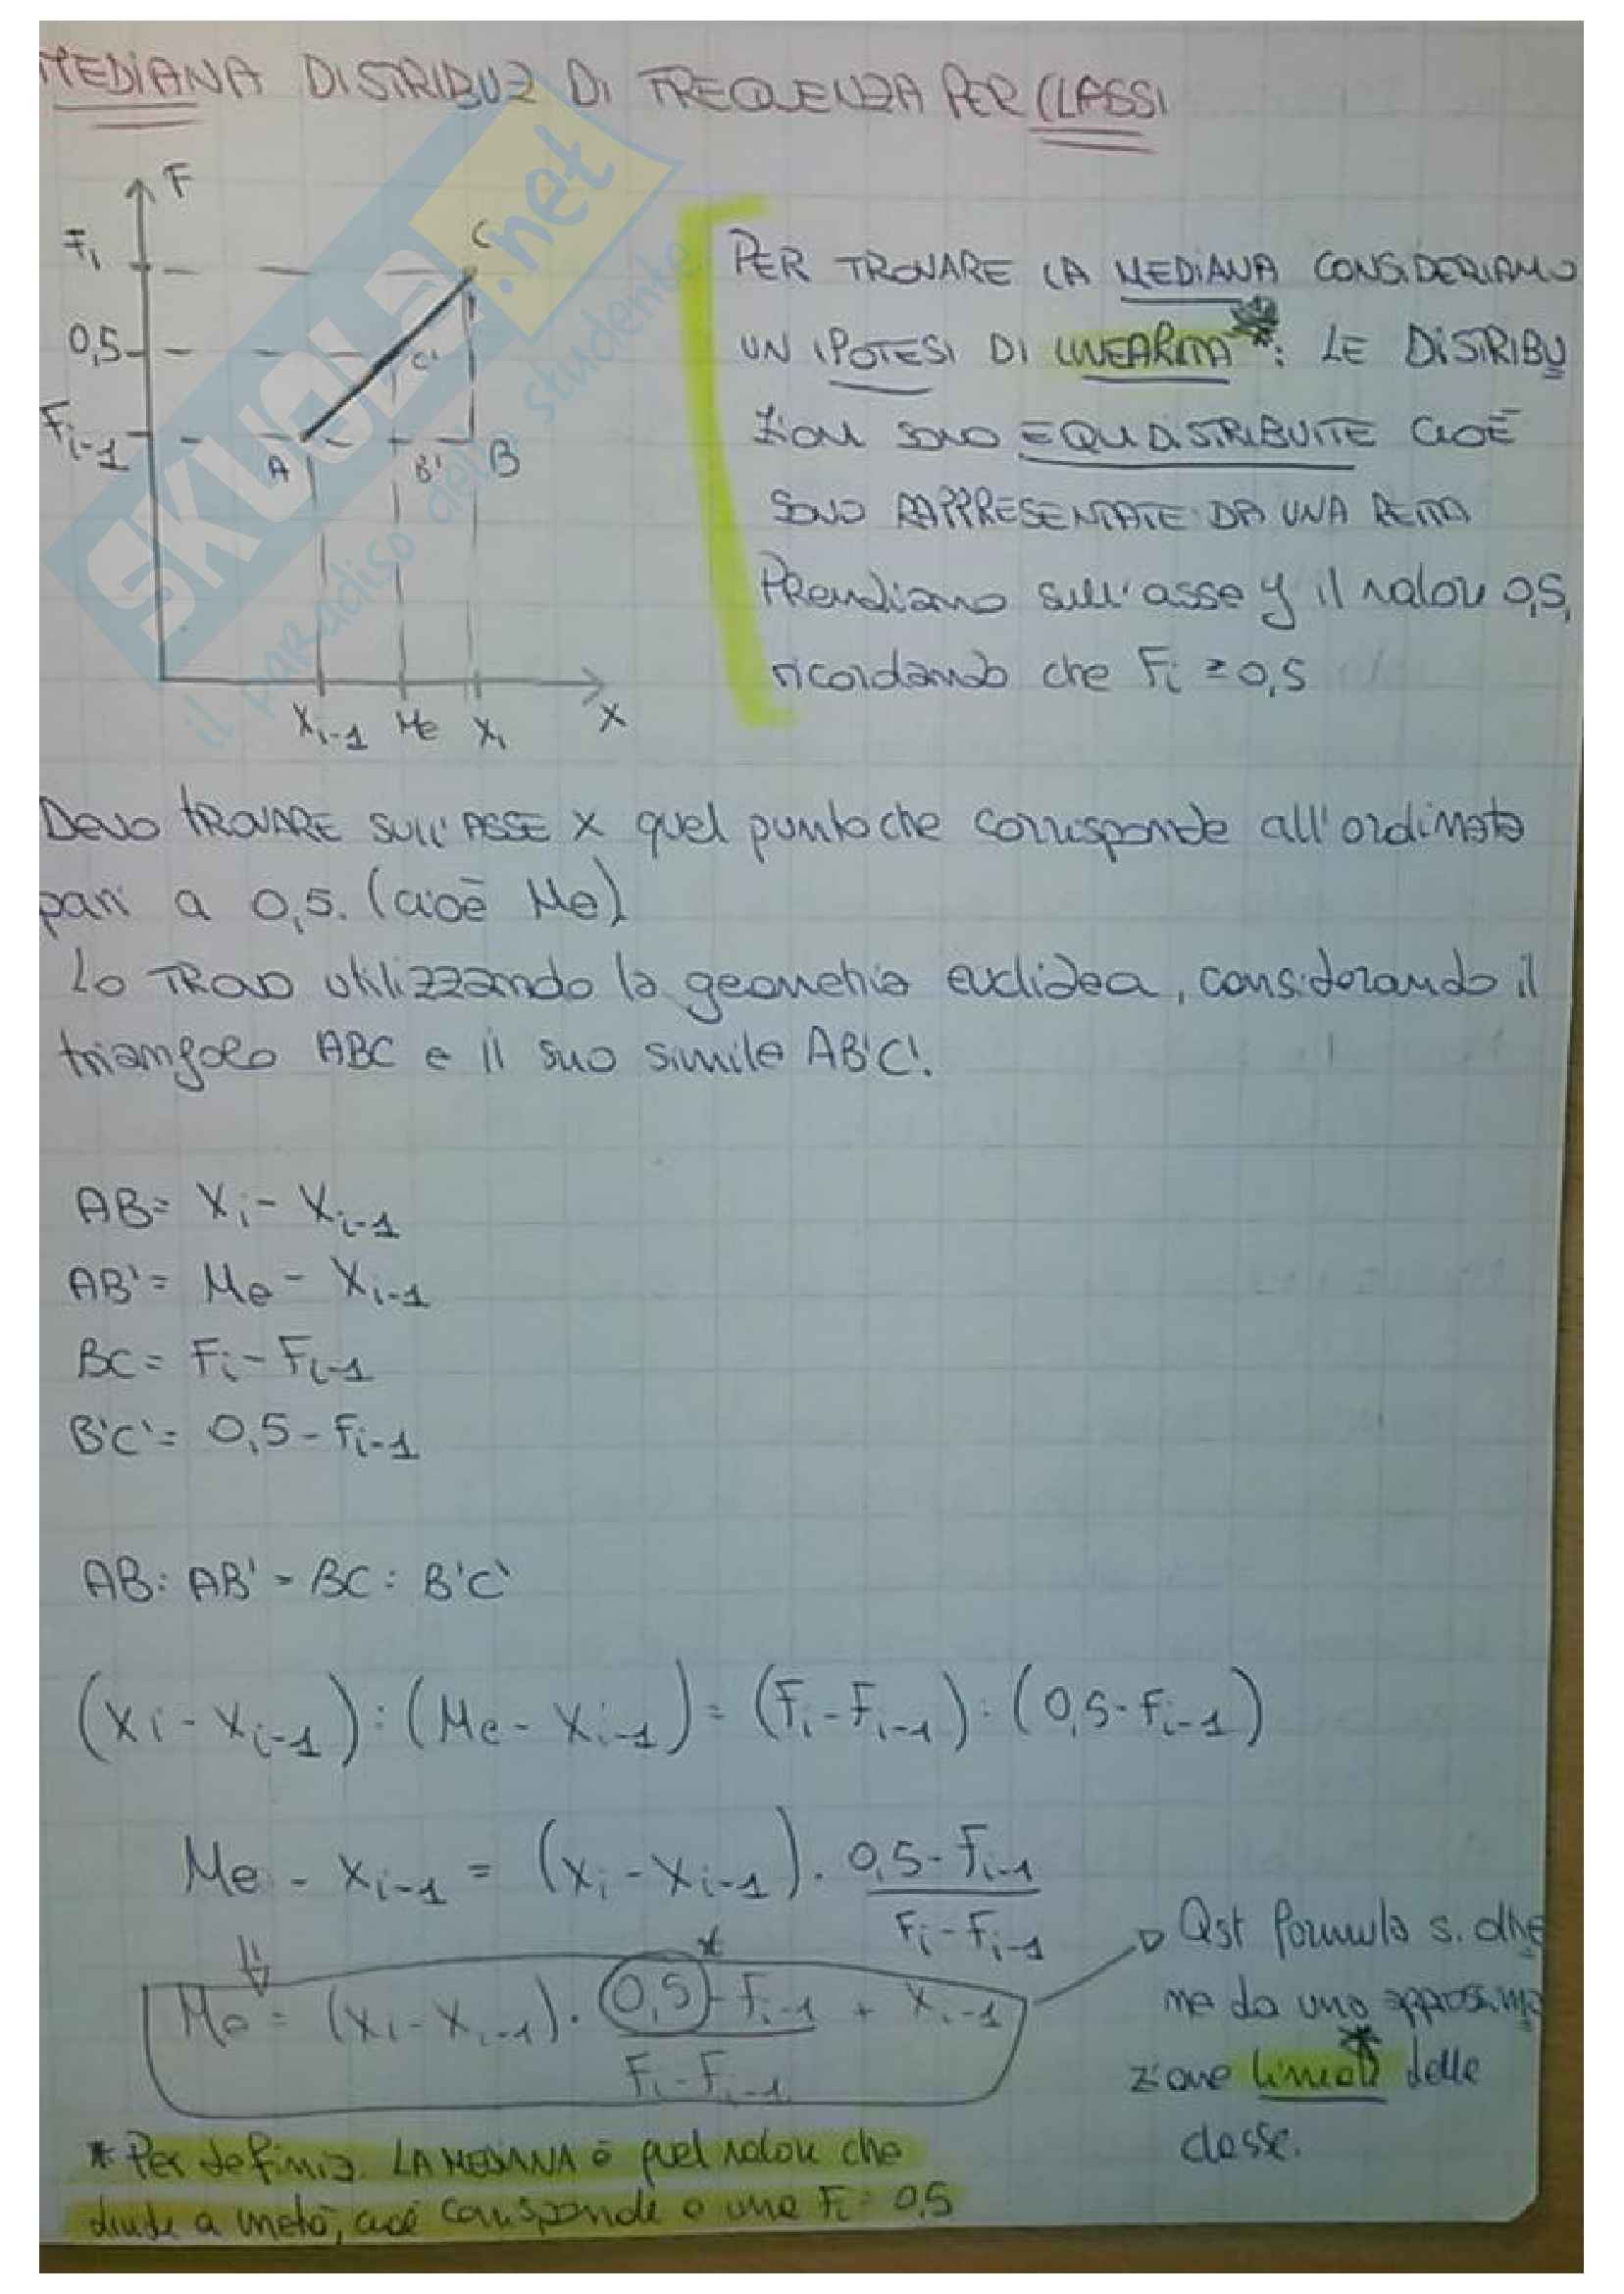 MEDIANA DISTRIBUZ DI FREQUENZA PER CLASSI
F
Fi
0,5
Fi-1
C
C'
A
B'
B
Xi-1 Me Xi
X
PER TROVARE LA MEDIANA CONSIDERIAMO
UN IPOTESI DI LINEARITÀ*: LE DISTRIBU
ZIONI SONO EQUIDISTRIBUITE CIOÈ
SONO RAPPRESENTATE DA UNA RETTA
Prendiamo sull'asse y il valore 0,5,
ricordando che Fi ≥ 0,5
SKUOLA.net
il paradiso dello studente
DEVO TROVARE SULL'ASSE X quel punto che corrisponde all'ordinata
pari a 0,5. (cioè Me)
Lo TROVO utilizzando la geometria euclidea, considerando il
triangolo ABC e il suo simile AB'C'.
AB = Xi - Xi-1
AB' = Me - Xi-1
BC = Fi - Fi-1
B'C' = 0,5 - Fi-1
AB : AB' = BC : B'C'
(Xi - Xi-1) : (Me - Xi-1) = (Fi - Fi-1) : (0,5 - Fi-1)
Me - Xi-1 = (Xi - Xi-1) · 0,5 - Fi-1
Fi - Fi-1
*
Me = (Xi - Xi-1) · 0,5 - Fi-1 + Xi-1
Fi - Fi-1
Qst formula si ottie
ne da una approssima
zione lineare* delle
classe.
* Per definiz. LA MEDIANA è quel valore che
divide a metà, cioè corrisponde a una Fi = 0,5